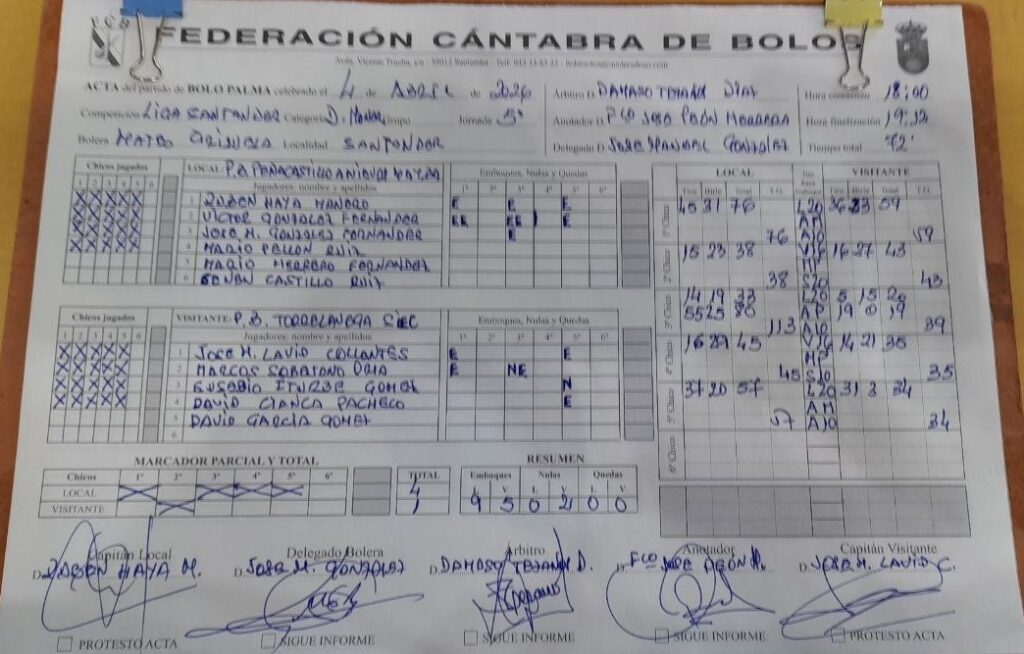 FEDERACIÓN CÁNTABRA DE BOLOS
ACTA del partido de BOLO PALMA celebrado el 4 de ABRIL de 2026
Competición LIGA SANTANDER Categoría D. Grupo Jornada 5ª
Bolera MATEO GRIJUELA Localidad SANTANDER
Árbitro D. DAMASO TEJANA DIAZ
Anotador D. Fco JOSE PEÓN HERRERA
Delegado D. JOSE MANUEL GONZALEZ
Hora comienzo 18:00
Hora finalización 19:12
Tiempo total 72'
Chicos jugados
1 2 3 4 5 6
LOCAL: P.B. PEÑACASTILLO
Jugadores: nombre y apellidos
Emboques, Nulas y Quedas
1º 2º 3º 4º 5º 6º
1 RUBEN HAYA MANERO E E E
2 VICTOR GONZALEZ FERNANDEZ EE EE E
3 JOSE M. GONZALEZ FERNANDEZ E
4 MARIO PELLON RUIZ
5 MARIO HERRERO FERNANDEZ
6 RUBEN CASTILLO RUIZ
Chicos jugados
1 2 3 4 5 6
VISITANTE: P. B. TORRELAVEGA SIEC
Jugadores: nombre y apellidos
Emboques, Nulas y Quedas
1º 2º 3º 4º 5º 6º
1 JOSE M. LAVID COLLANTES E E
2 MARCOS SOBEJANO ORIA E NE
3 EUSEBIO ITURBE GOMEZ N
4 DAVID CIANCA PACHECO E
5 DAVID GARCIA GOMEZ
6
LOCAL VISITANTE
Tiro Birle Total T.G. Tiro Birle Total T.G.
1º Chico 45 31 76 L20 36 23 59
AM
76 A10 59
2º Chico 15 23 38 V16 16 27 43
38 S20 43
3º Chico 14 19 33 L20 5 15 20
55 25 80 AP 19 0 19
113 A10 39
4º Chico 16 29 45 V16 14 21 35
45 S20 35
5º Chico 37 20 57 L20 31 3 34
AM
57 A10 34
6º Chico
MARCADOR PARCIAL Y TOTAL
Chicos 1º 2º 3º 4º 5º 6º TOTAL
LOCAL X X X X 4
VISITANTE X 1
RESUMEN
Emboques Nulas Quedas
L V L V L V
9 5 0 2 0 0
Capitán Local Delegado Bolera Árbitro Anotador Capitán Visitante
D. RUBEN HAYA M. D. JOSE M. GONZALEZ D. DAMASO TEJANA D. D. Fco JOSE PEÓN H. D. JOSE M. LAVID C.
PROTESTO ACTA SIGUE INFORME SIGUE INFORME SIGUE INFORME PROTESTO ACTA